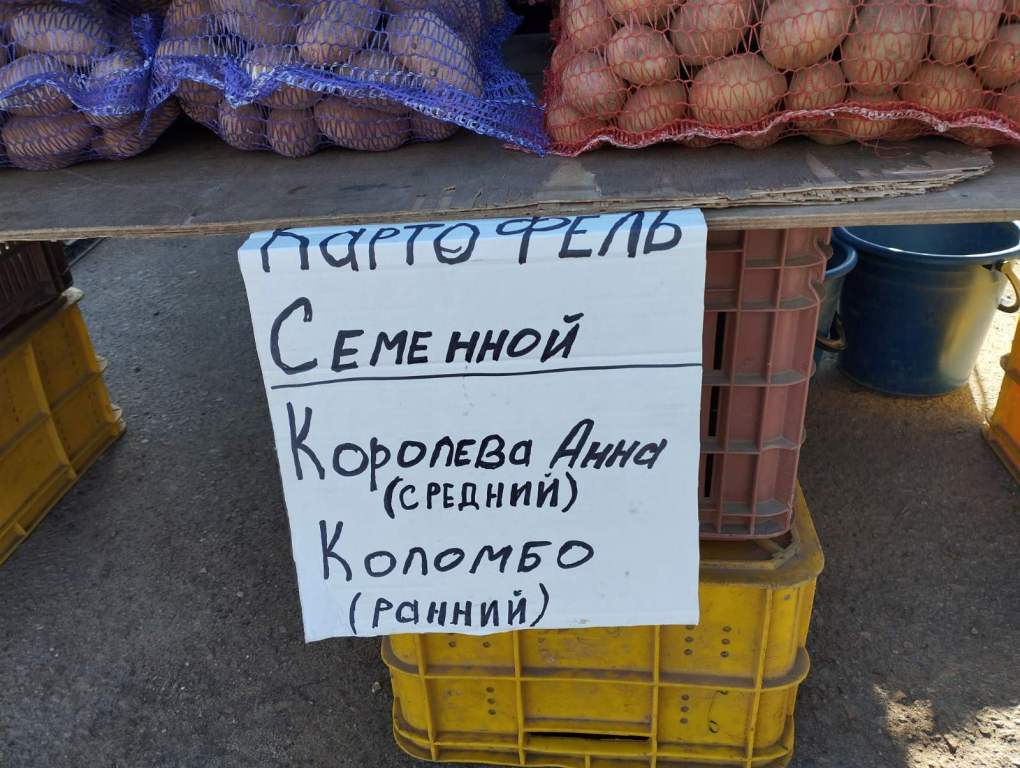 Картофель
Семенной
Королева Анна
(средний)
Коломбо
(ранний)